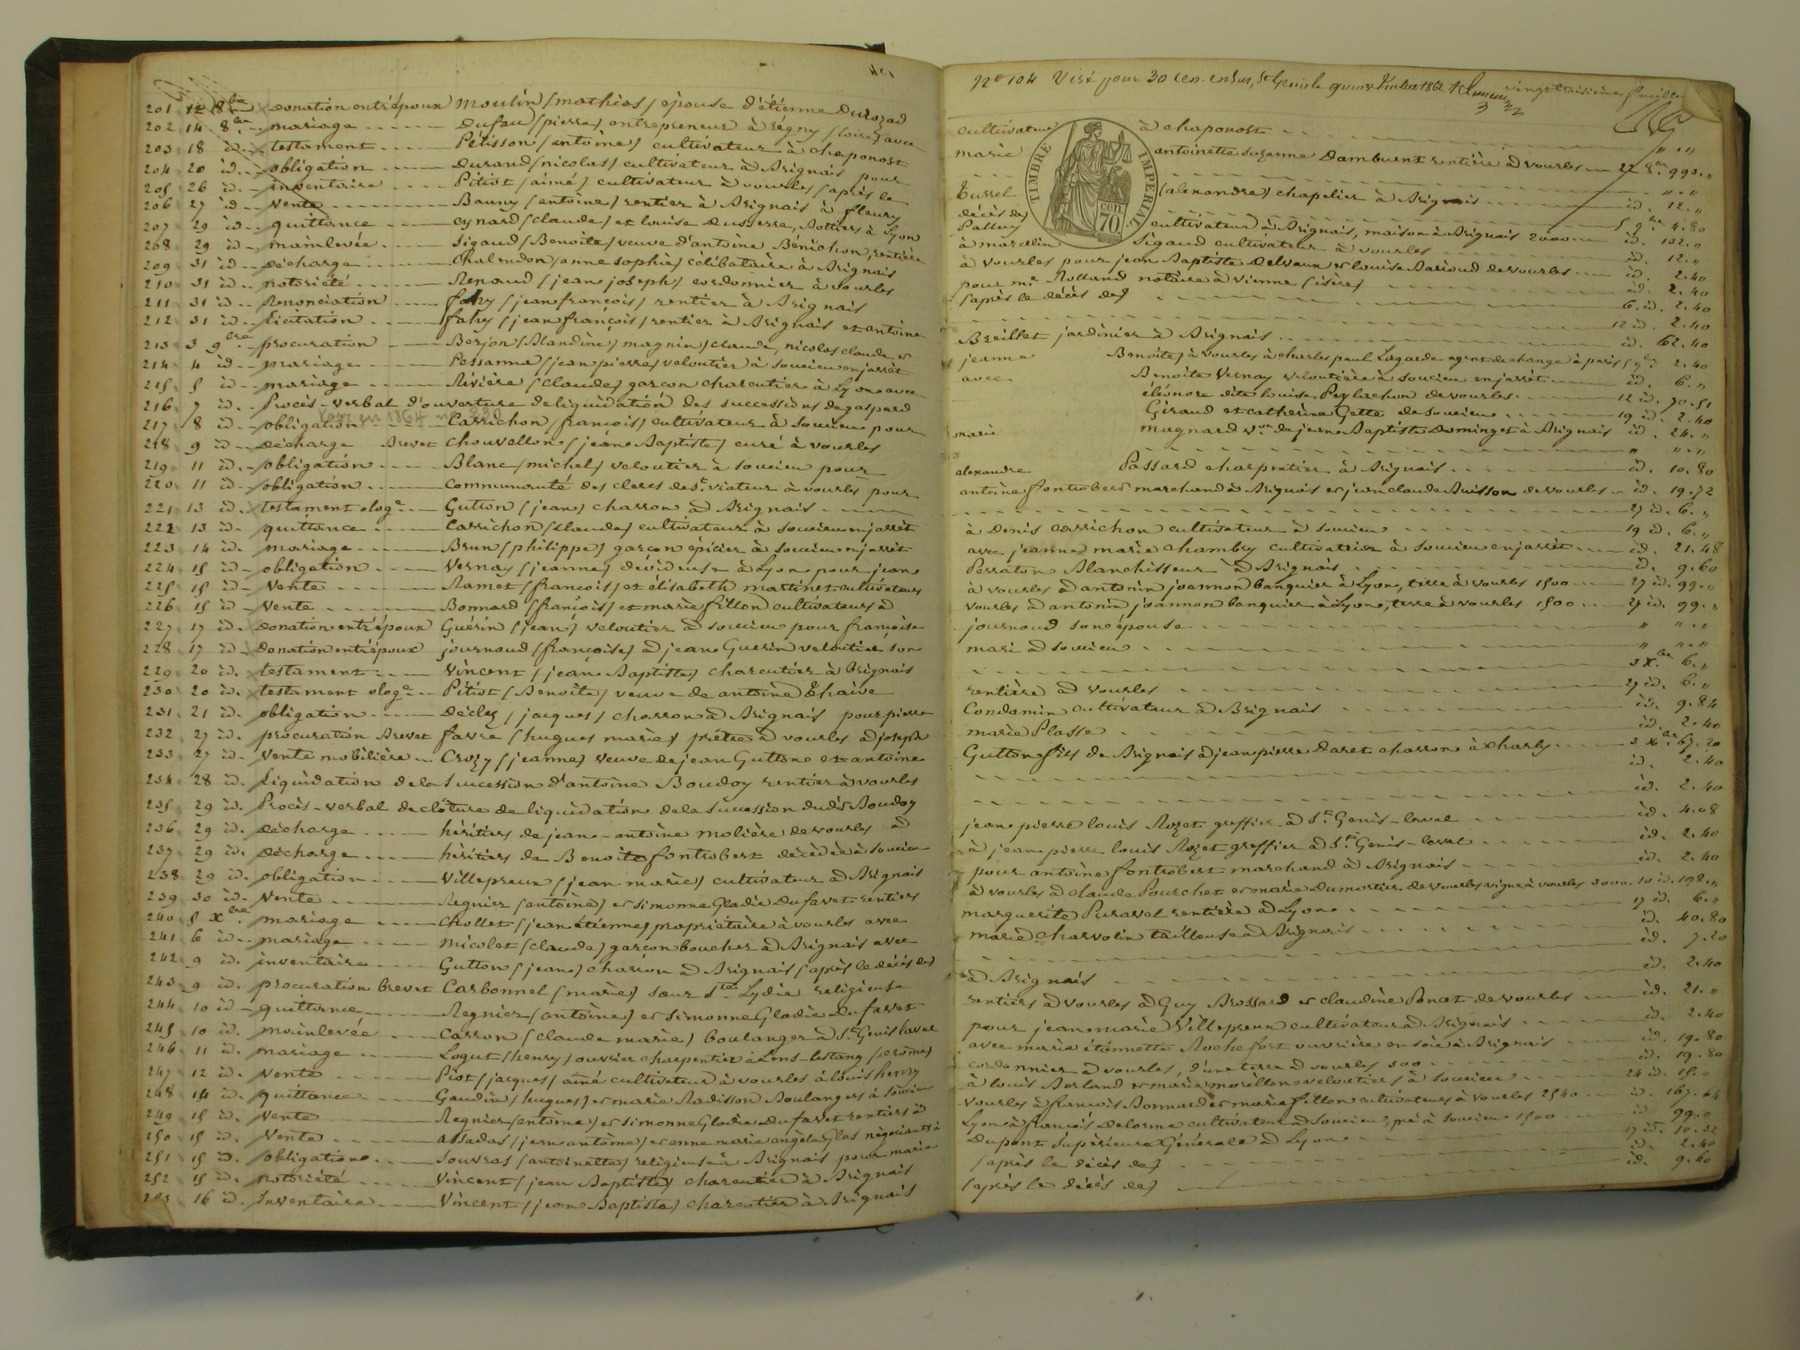 201 12 8bre donation entr'époux moulin (mathias) épouse d'étienne Durozad
202 14 8bre mariage Dufau (pierre) entrepreneur à régny (loire) avec
203 18 id. testament Pétisson (antoine) cultivateur à chaponost
204 20 id. obligation Durand (nicolas) cultivateur à Brignais pour
205 26 id. inventaire Pitiot (aimé) cultivateur à vourles (après le
206 27 id vente Bauny (antoine) rentier à Brignais à fleury
207 29 id. quittance eynard (claude) et louise Dusserre, à Lyon
208 29 id mainlevée Sigaud (Benoîte) veuve d'antoine Bénichon, rentière
209 31 id décharge (anne sophie) célibataire à Brignais
210 31 id. notoriété Renaud (jean joseph) cordonnier à vourles
211 31 id. Renonciation fahy (jean françois) rentier à Brignais
212 31 id. licitation fahy (jean françois) rentier à Brignais et antoine
213 3 9bre procuration Berjon (Blandine) magnin (claude, nicolas claude et
214 4 id. mariage Possanne (jean pierre) veloutier à soucieu enjarrêt
215 5 id. mariage Rivière (claude) garçon charcutier à Lyon avec
216 7 id. Procès-verbal d'ouverture de liquidation des successions de gaspard
Voir en 1864
217 8 id. obligation Carrichon (françois) cultivateur à soucieu pour
218 9 id. décharge Brevet chouvellon (jean Baptiste) curé à vourles
219 11 id. obligation Blanc (michel) veloutier à soucieu pour
220 11 id. obligation Communauté des clercs de St viateur à vourles pour
221 13 id. testament olog.e Gutton (jean) charron à Brignais
222 13 id. quittance Carrichon (claude) cultivateur à soucieu enjarrêt
223 14 id. mariage Brun (philippe) garçon épicier à soucieu enjarrêt
224 15 id. obligation Vernay (jeanne) dévideuse à Lyon pour jean
225 15 id. Vente Ramet (françois) et élisabeth martinet cultivateurs
226 15 id. Vente Bonnard (françois) et marie fillon cultivateurs à
227 17 id. donation entr'époux Guérin (jean) veloutier à soucieu pour françoise
228 17 id. donation entr'époux journoud (françoise) à jean Guerin veloutier son
229 20 id. testament Vincent (jean Baptiste) charcutier à Brignais
230 20 id. testament olog.e Pitiot (Benoîte) veuve de antoine Thaive
231 21 id. obligation déclez (jacques) charron à Brignais pour pierre
232 27 id. procuration Brevet favre (hugues marie) prêtre à vourles à joseph
233 27 id. Vente mobilière Crozy (jeanne) veuve de jean Guttone et antoine
234 28 id. Liquidation de la Succession d'antoine Boudoy rentier à vourles
235 29 id. Procès-verbal de clôture de liquidation de la succession dudit Boudoy
236 29 id. décharge héritiers de jean-antoine molière de vourles à
237 29 id. décharge héritiers de Benoîte fontrobert décédée à soucieu
238 29 id. obligation Villepreux (jean marie) cultivateur à Brignais
239 30 id. Vente Regnier (antoine) et simonne Gladie Dufavet rentiers
240 5 Xbre mariage Chollet (jean étienne) propriétaire à vourles avec
241 6 id. mariage micolet (claude) garçon boucher à Brignais avec
242 9 id. inventaire Gutton (jean) charron à Brignais (après le décès de)
243 9 id. procuration brevet Carbonnel (marie) sœur Ste Lydie religieuse
244 10 id quittance Regnier (antoine) et simonne Gladie Dufavet
245 10 id. mainlevée Carron (claude marie) boulanger à St Genis laval
246 11 id. mariage Logut (henry) ouvrier charpentier à Lens-lestang (drôme)
247 12 id. Vente Piot (jacques) aîné cultivateur à vourles à louis henry
248 14 id. quittance Gaudin (hugues) et marie Radisson Boulangers à soucieu
249 15 id. Vente Regnier (antoine) et simonne Gladie Dufavet rentiers à
250 15 id. Vente assadas (jean antoine) et anne marie angèle Glas négociants à
251 15 id. obligation Souvras (antoinette) religieuse à Brignais pour marie
252 15 id. notoriété Vincent (jean Baptiste) charcutier à Brignais
253 16 id. Inventaire Vincent (jean Baptiste) charcutier à Brignais
No 104 Visé pour 30 cen. St Genis le quinze 1862 vingt troisième feuille
TIMBRE IMPERIAL
cen 70
cultivateur à chaponost " "
marie antoinette suzanne Dambuent rentière à vourles 22 8bre 990."
" "
Tussel (alexandre) chapelier à Brignais id. 12."
décès de)
Palluy cultivateur à Brignais, maison à Brignais 2000 5 9bre 4.80
à marcelin Sigaud cultivateur à vourles id. 132."
à vourles pour jean Baptiste Delvaux et louise Barioud de vourles id. 12."
pour me Rolland notaire à Vienne (isère) id. 2.40
(après le décès de) id. 2.40
6 id. 2.40
12 id. 2.40
Breillet jardinier à Brignais id. 62.40
jeanne Benoîte) à vourles à charles paul Lagarde agent de change à paris 5 9bre 2.40
avec Benoîte Vernay veloutière à soucieu enjarrêt id. 6."
éléonore dite louise Peylachon de vourles 12 id. 70.51
Giraud et catherine Gatte de soucieu 19 id. 2.40
marie magnard vve de jean Baptiste Dominget à Brignais id. 24."
" " "
alexandre Passard charpentier à Brignais id. 10.80
antoine fontrobert marchand à Brignais et jean claude Buisson de vourles id. 19.72
27 id. 6."
à Denis carrichon cultivateur à soucieu 19 id. 6."
avec jeanne marie chambry cultivatrice à soucieu enjarrêt id. 21.48
Perraton Blanchisseur à Brignais id. 9.60
à vourles à antonin joannon banquier à Lyon, terre à vourles 1500 27 id. 99."
vourles à antonin joannon banquier à Lyon, terre à vourles 1500 27 id. 99."
journoud son épouse " " "
mari à soucieu " " "
3 Xbre 6."
rentière à vourles 27 id. 6."
Condamin cultivateur à Brignais id. 9.84
marie Plasse id. 2.40
Gutton fils de Brignais à jean pierre Daret charron à Charly 3 Xbre 67.20
id. 2.40
id. 2.40
jean pierre louis Rozet greffier à St Genis-laval id. 4.08
à jean pierre louis Rozet greffier à St Genis-laval id. 2.40
pour antoine fontrobert marchand à Brignais id. 2.40
à vourles à claude Pourchet et marie Dumortier de vourles vigne à vourles 3000. 10 id. 198."
marguerite Puravel rentière à Lyon 17 id. 6."
marie charvolin tailleuse à Brignais id. 40.80
id. 7.20
à Brignais id. 2.40
rentiers à vourles à Guy Brossard et claudine Poncet de vourles id. 21."
pour jean marie Villepreux cultivateur à Brignais id. 2.40
avec marie étiennette Rochefort ouvrière en soie à Brignais id. 19.80
cordonnier à vourles, d'une terre à vourles 300. id. 19.80
à louis Borland et marie morillon veloutiers à soucieu 24 id. 15."
vourles à françois Bonnard et marie fillon cultivateurs à vourles 2540 id. 167.64
Lyon à françois Delorme cultivateur à soucieu, pré à soucieu 1500 id. 99."
Dupont Supérieure Générale à Lyon 17 id. 10.32
(après le décès de) id. 2.40
(après le décès de) id. 9.60